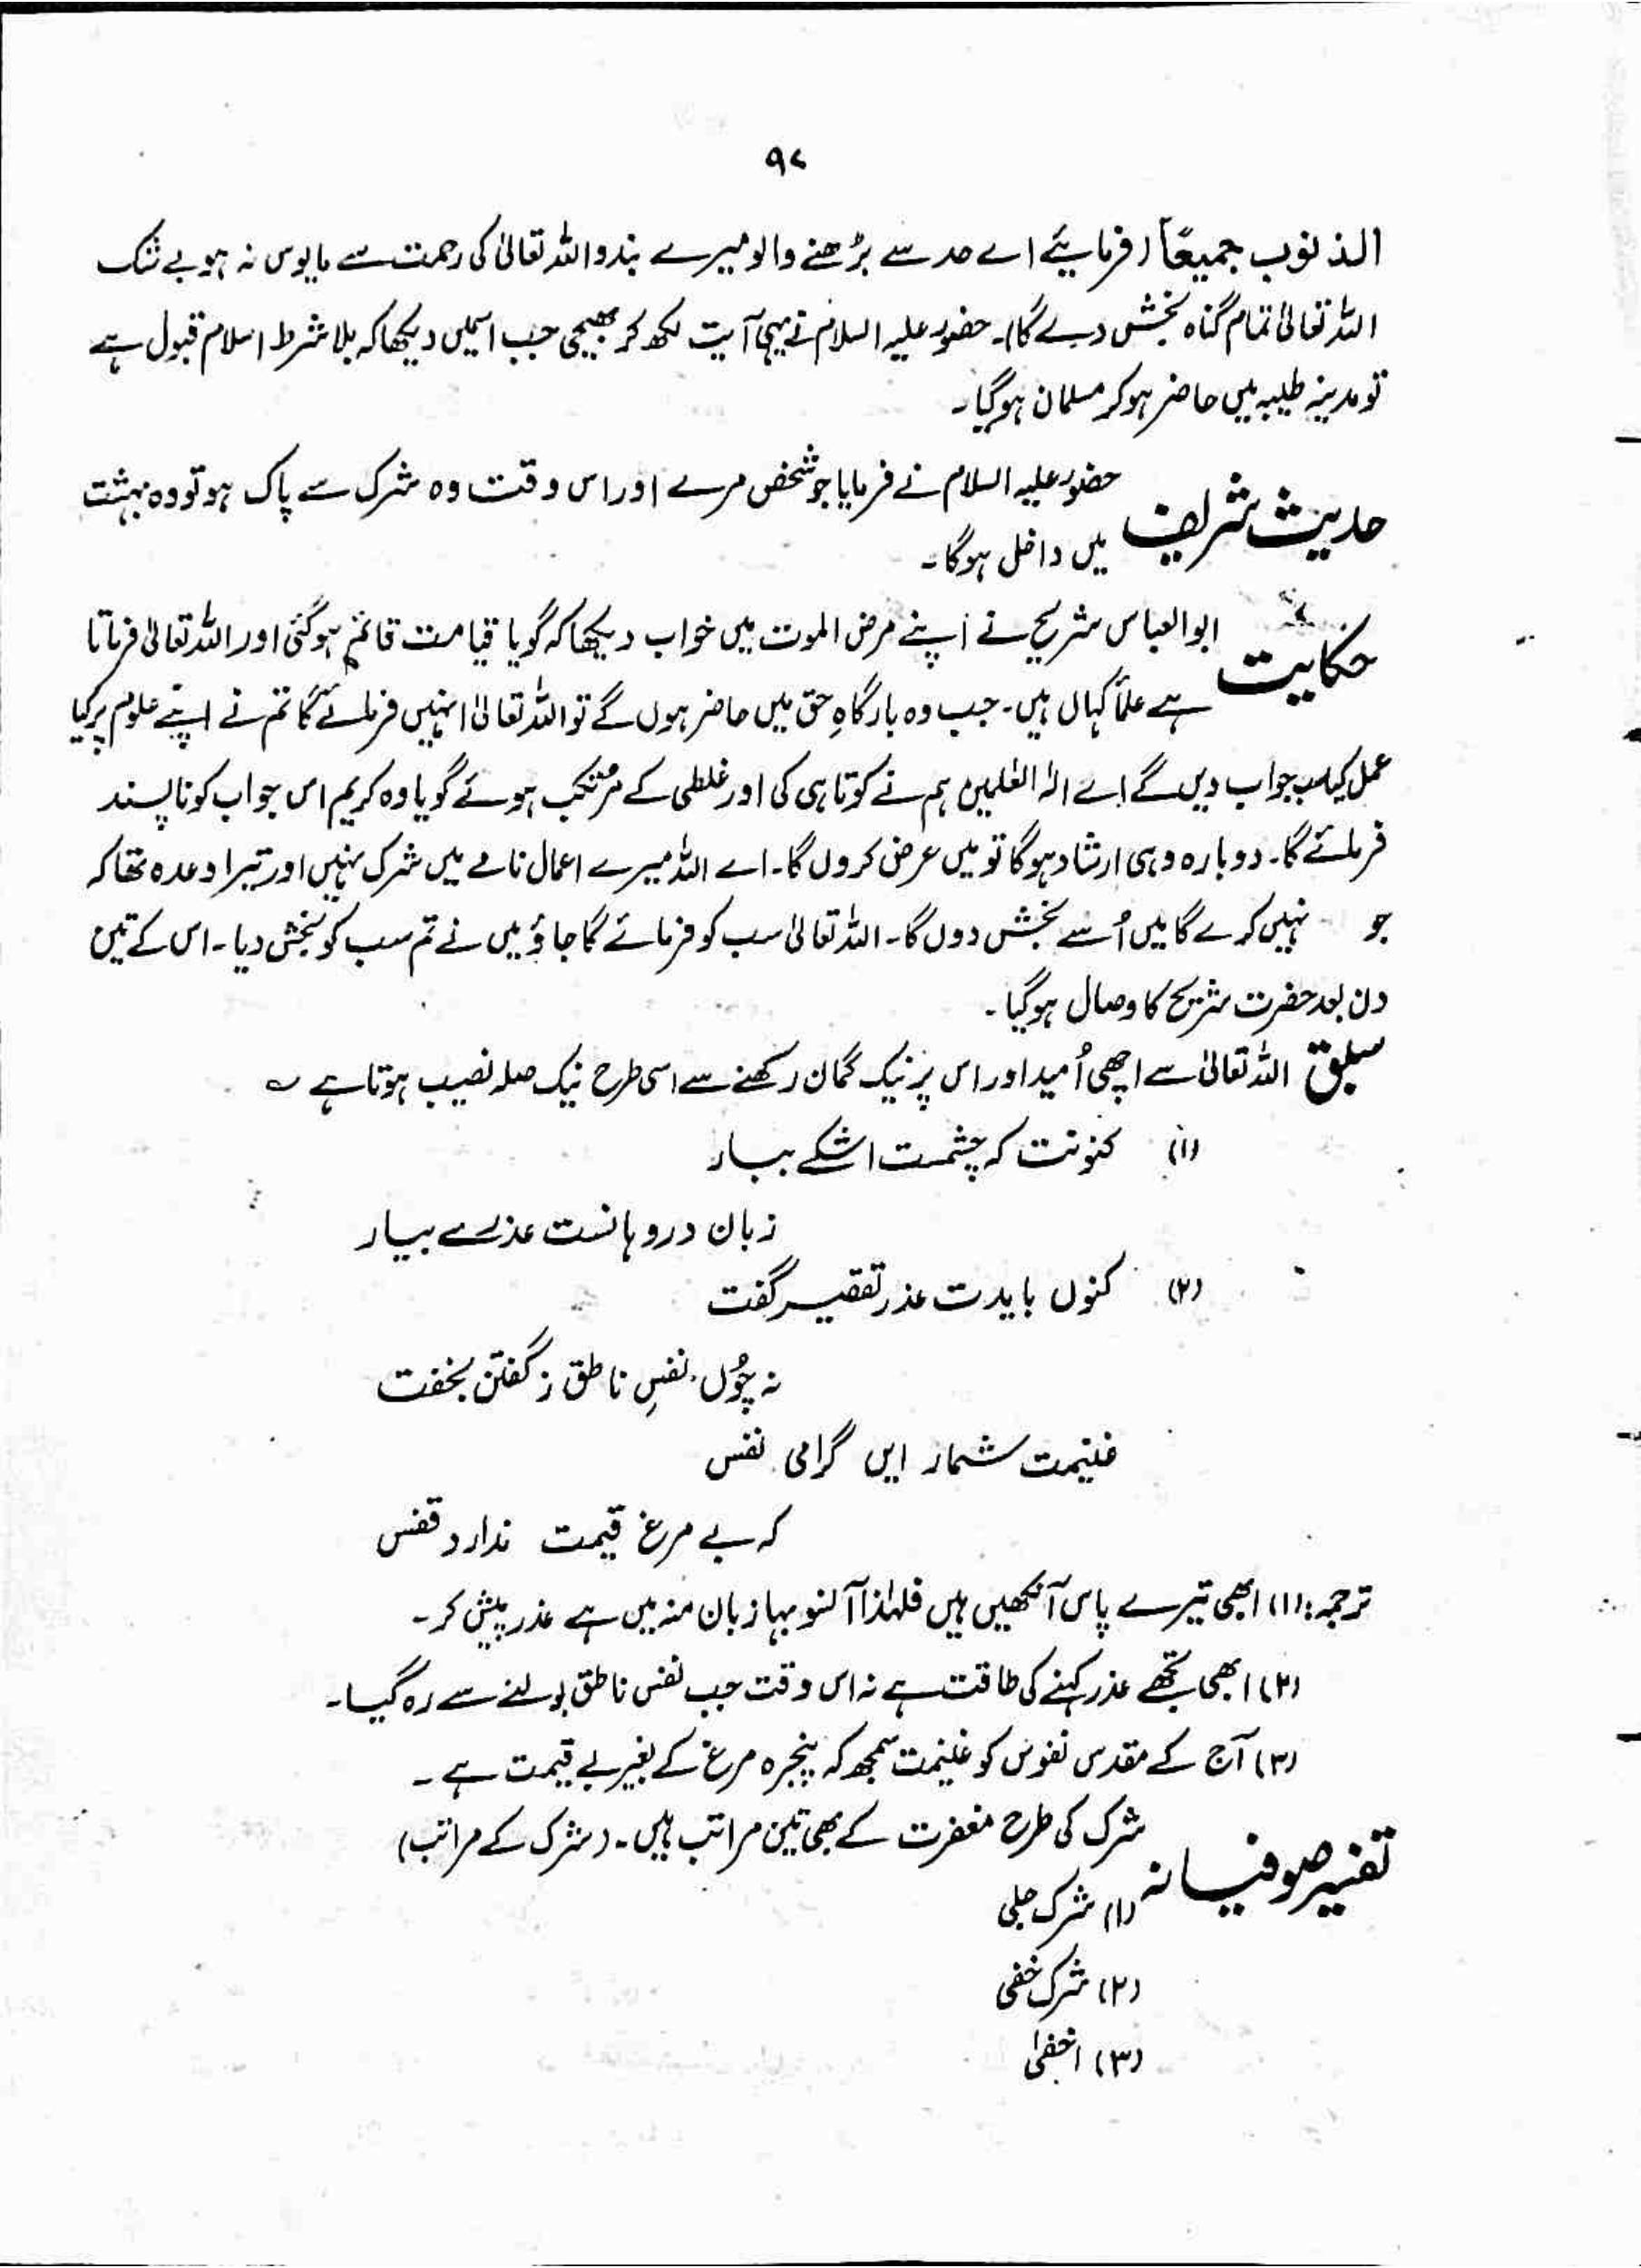 ۹۷
الذنوب جمیعًا (فرمایئے اے حد سے بڑھنے والو میرے بندو اللہ تعالیٰ کی رحمت سے مایوس نہ ہو بے شک
اللہ تعالیٰ تمام گناہ بخش دے گا)۔ حضور علیہ السلام نے یہی آیت لکھ کر بھیجی جب اسمیں دیکھا کہ بلا شرط اسلام قبول ہے
تو مدینہ طیبہ میں حاضر ہو کر مسلمان ہو گیا۔
حدیث شریف حضور علیہ السلام نے فرمایا جو شخص مرے اور اس وقت وہ شرک سے پاک ہو تو وہ بہشت
میں داخل ہوگا۔
حکایت ابوالعباس شریح نے اپنے مرض الموت میں خواب دیکھا کہ گویا قیامت قائم ہوگئی اور اللہ تعالیٰ فرماتا
ہے علمأ کہاں ہیں۔ جب وہ بارگاہِ حق میں حاضر ہوں گے تو اللہ تعالیٰ انہیں فرمائے گا تم نے اپنے علوم پر کیا
عمل کیا سب جواب دیں گے اے الٰہ العٰلمین ہم نے کوتاہی کی اور غلطی کے مرتکب ہوئے گویا وہ کریم اس جواب کو ناپسند
فرمائے گا۔ دوبارہ وہی ارشاد ہوگا تو میں عرض کروں گا۔ اے اللہ میرے اعمال نامے میں شرک نہیں اور تیرا وعدہ تھا کہ
جو نہیں کرے گا میں اُسے بخش دوں گا۔ اللہ تعالیٰ سب کو فرمائے گا جاؤ میں نے تم سب کو بخش دیا۔ اس کے تین
دن بعد حضرت شریح کا وصال ہو گیا۔
سبق اللہ تعالیٰ سے اچھی اُمید اور اس پر نیک گمان رکھنے سے اسی طرح نیک صلہ نصیب ہوتا ہے ؎
(۱) کنونت کہ چشمست اشکے ببار
زبان در دہانست عذرے بیار
(۲) کنوں بایدت عذر تقصیر گفت
نہ چُوں نفسِ ناطق ز گفتن بخفت
غنیمت شمار ایں گرامی نفس
کہ بے مرغ قیمت ندارد قفس
ترجمہ: (۱) ابھی تیرے پاس آنکھیں ہیں فلہٰذا آنسو بہا زبان منہ میں ہے عذر پیش کر۔
(۲) ابھی تجھے عذر کہنے کی طاقت ہے نہ اس وقت جب نفس ناطق بولنے سے رہ گیا۔
(۳) آج کے مقدس نفوس کو غنیمت سمجھ کہ پنجرہ مرغ کے بغیر بے قیمت ہے۔
تفسیر صوفیانہ شرک کی طرح مغفرت کے بھی تین مراتب ہیں۔ (شرک کے مراتب)
(۱) شرک جلی
(۲) شرک خفی
(۳) اخفیٰ